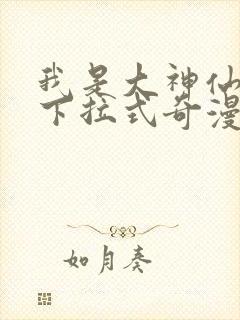 我是大神仙
下拉式奇漫
如月奏